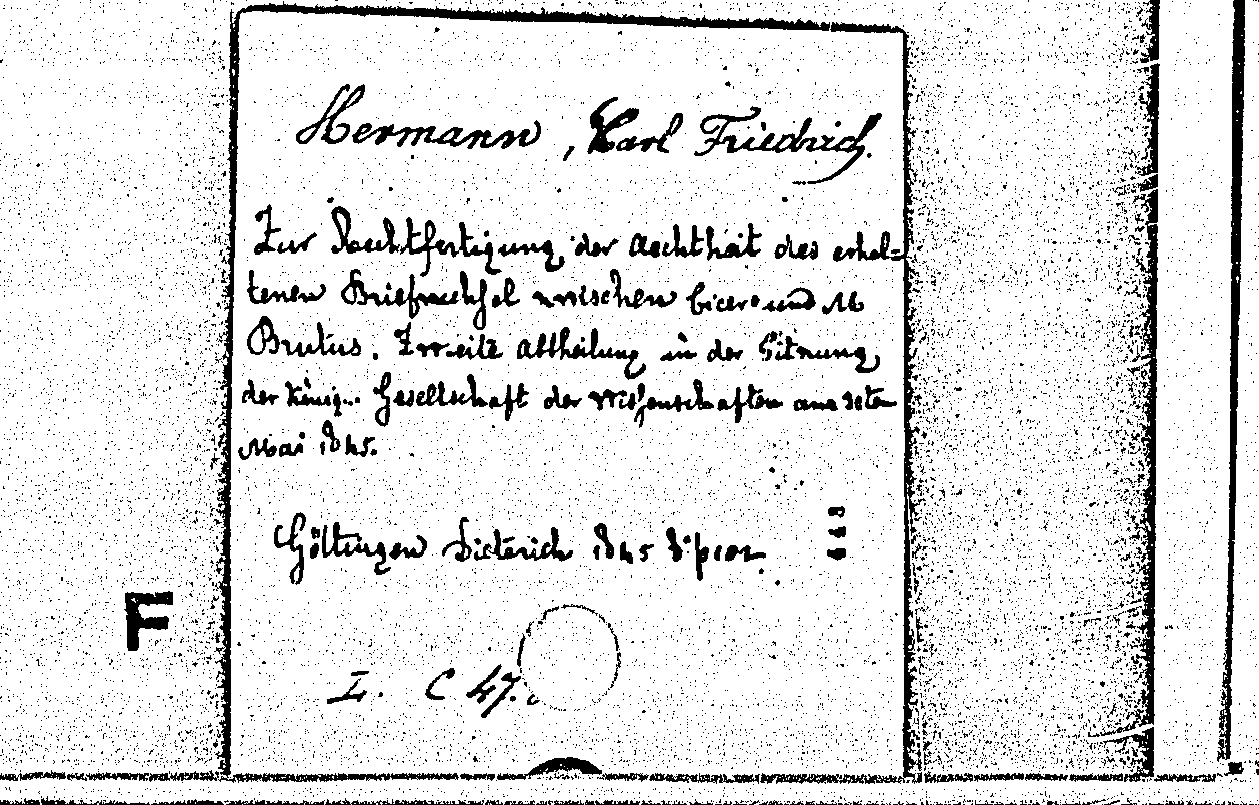 Hermann, Karl Friedrich.
Zur Rechtfertigung der Aechtheit des erhal=
tenen Briefwechsel zwischen Cicero und M
Brutus. Zweite Abtheilung in der Sitzung
der Königl. Gesellschaft der Wissenschaften am 3ten
Mai 1845.
Göttingen Dieterich 1845 8° p 102
F
I. C 47.